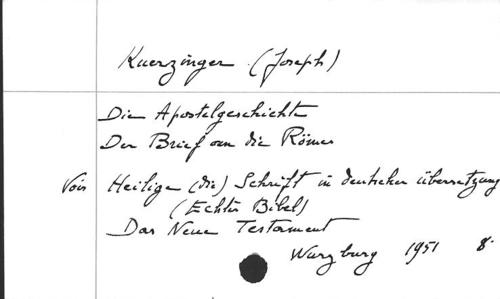 Kuerzinger (Joseph)
Die Apostelgeschichte
Der Brief an die Römer
Voir Heilige (die) Schrift in deutscher übersetzung
(Echter Bibel)
Das Neue Testament
Wurzburg 1951 8°